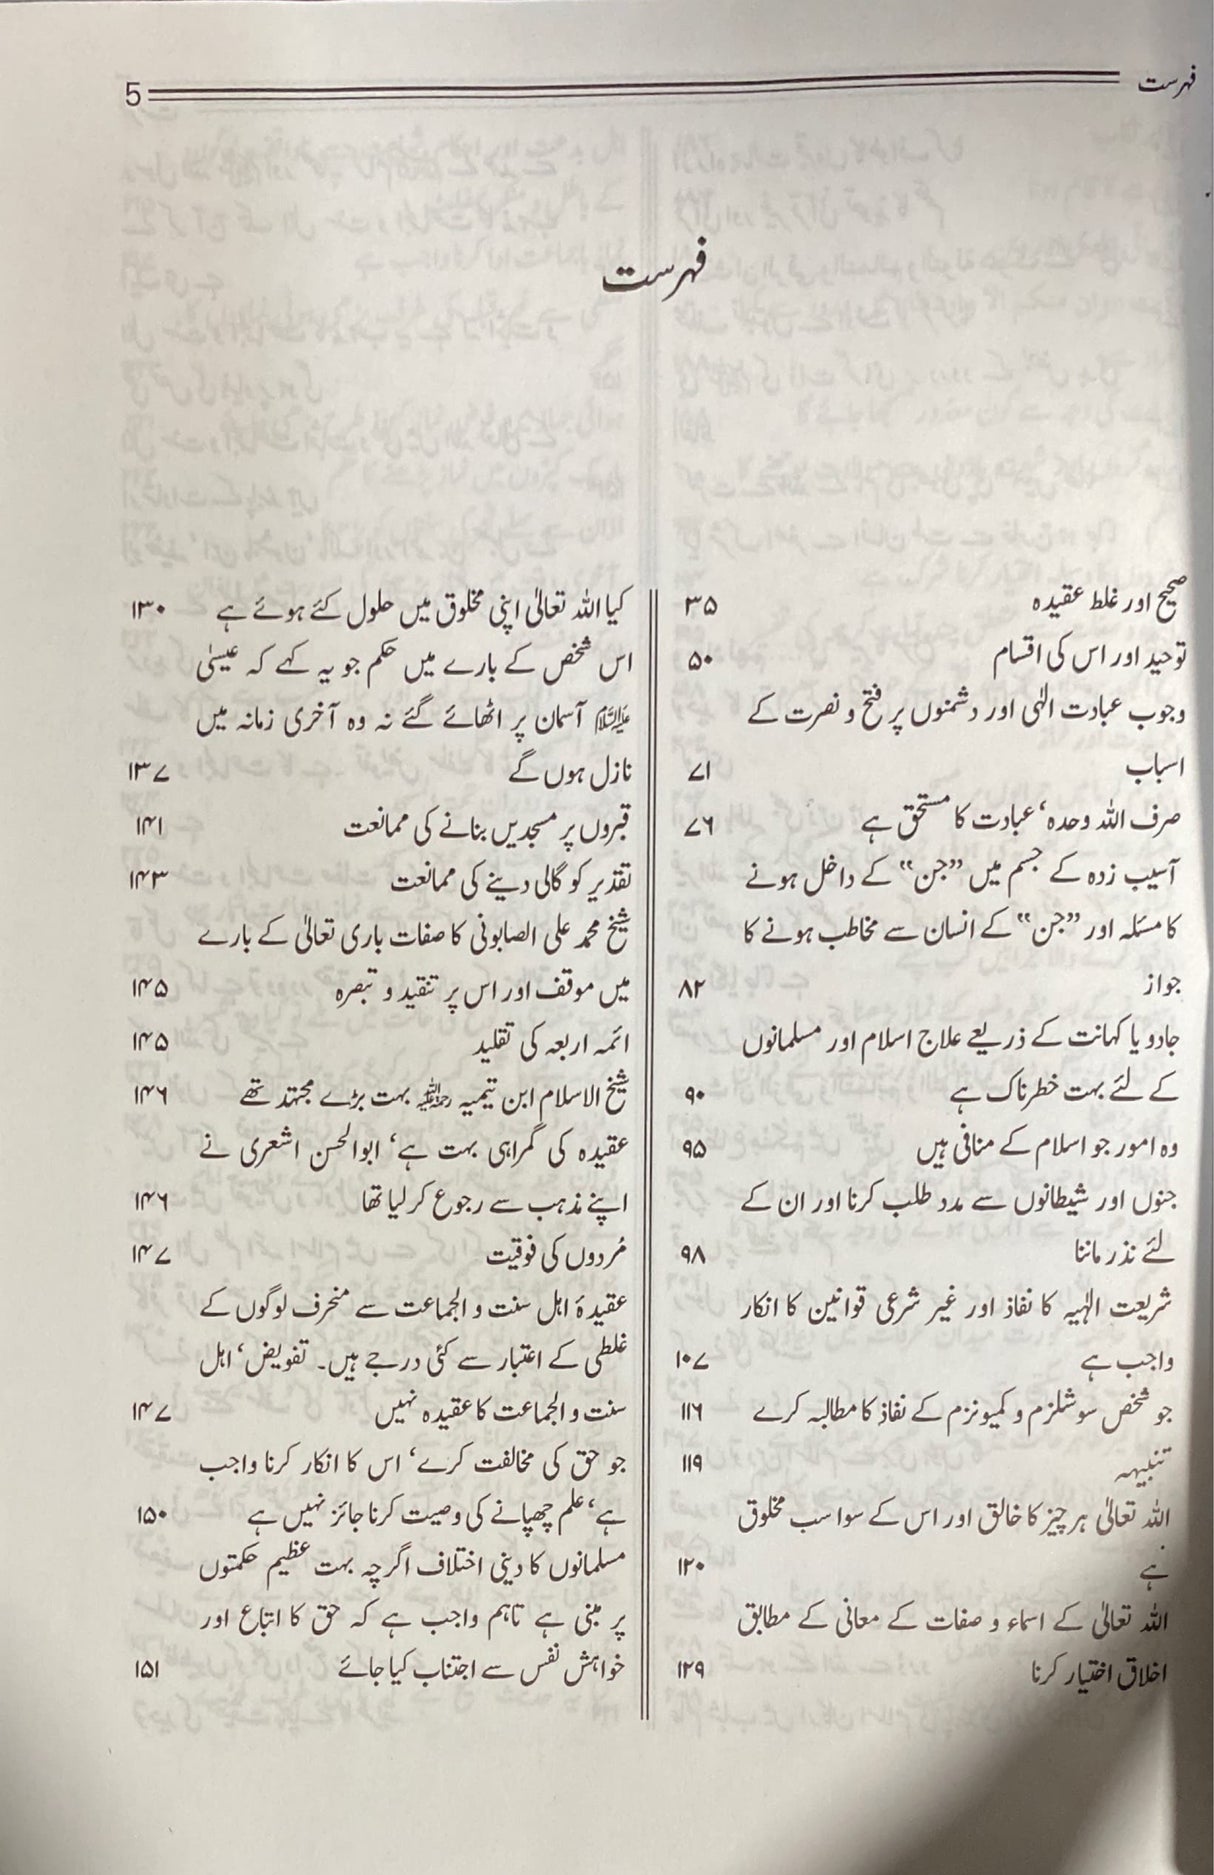 فہرست
5
فہرست
صحیح اور غلط عقیدہ ۳۵
توحید اور اس کی اقسام ۵۰
وجوب عبادت الٰہی اور دشمنوں پر فتح و نصرت کے
اسباب ۷۱
صرف اللہ وحدہ، عبادت کا مستحق ہے ۷۶
آسیب زدہ کے جسم میں ”جن“ کے داخل ہونے
کا مسئلہ اور ”جن“ کے انسان سے مخاطب ہونے کا
جواز ۸۲
جادو یا کہانت کے ذریعے علاج اسلام اور مسلمانوں
کے لئے بہت خطرناک ہے ۹۰
وہ امور جو اسلام کے منافی ہیں ۹۵
جنوں اور شیطانوں سے مدد طلب کرنا اور ان کے
لئے نذر ماننا ۹۸
شریعت الٰہیہ کا نفاذ اور غیر شرعی قوانین کا انکار
واجب ہے ۱۰۷
جو شخص سوشلزم و کمیونزم کے نفاذ کا مطالبہ کرے ۱۱۶
تنبیہہ ۱۱۹
اللہ تعالیٰ ہر چیز کا خالق اور اس کے سوا سب مخلوق
ہے ۱۲۰
اللہ تعالیٰ کے اسماء و صفات کے معانی کے مطابق
اخلاق اختیار کرنا ۱۲۹
کیا اللہ تعالیٰ اپنی مخلوق میں حلول کئے ہوئے ہے ۱۳۰
اس شخص کے بارے میں حکم جو یہ کہے کہ عیسیٰ
علیہ السلام آسمان پر اٹھائے گئے نہ وہ آخری زمانہ میں
نازل ہوں گے ۱۳۷
قبروں پر مسجدیں بنانے کی ممانعت ۱۴۱
تقدیر کو گالی دینے کی ممانعت ۱۴۳
شیخ محمد علی الصابونی کا صفات باری تعالیٰ کے بارے
میں موقف اور اس پر تنقید و تبصرہ ۱۴۵
ائمہ اربعہ کی تقلید ۱۴۵
شیخ الاسلام ابن تیمیہ رحمۃ اللہ علیہ بہت بڑے مجتہد تھے ۱۴۶
عقیدہ کی گمراہی بہت ہے، ابوالحسن اشعری نے
اپنے مذہب سے رجوع کر لیا تھا ۱۴۶
مُردوں کی فوقیت ۱۴۷
عقیدۂ اہل سنت و الجماعت سے منحرف لوگوں کے
غلطی کے اعتبار سے کئی درجے ہیں۔ تفویض، اہل
سنت و الجماعت کا عقیدہ نہیں ۱۴۷
جو حق کی مخالفت کرے، اس کا انکار کرنا واجب
ہے، علم چھپانے کی وصیت کرنا جائز نہیں ہے ۱۵۰
مسلمانوں کا دینی اختلاف اگرچہ بہت عظیم حکمتوں
پر مبنی ہے تاہم واجب ہے کہ حق کا اتباع اور
خواہش نفس سے اجتناب کیا جائے ۱۵۱